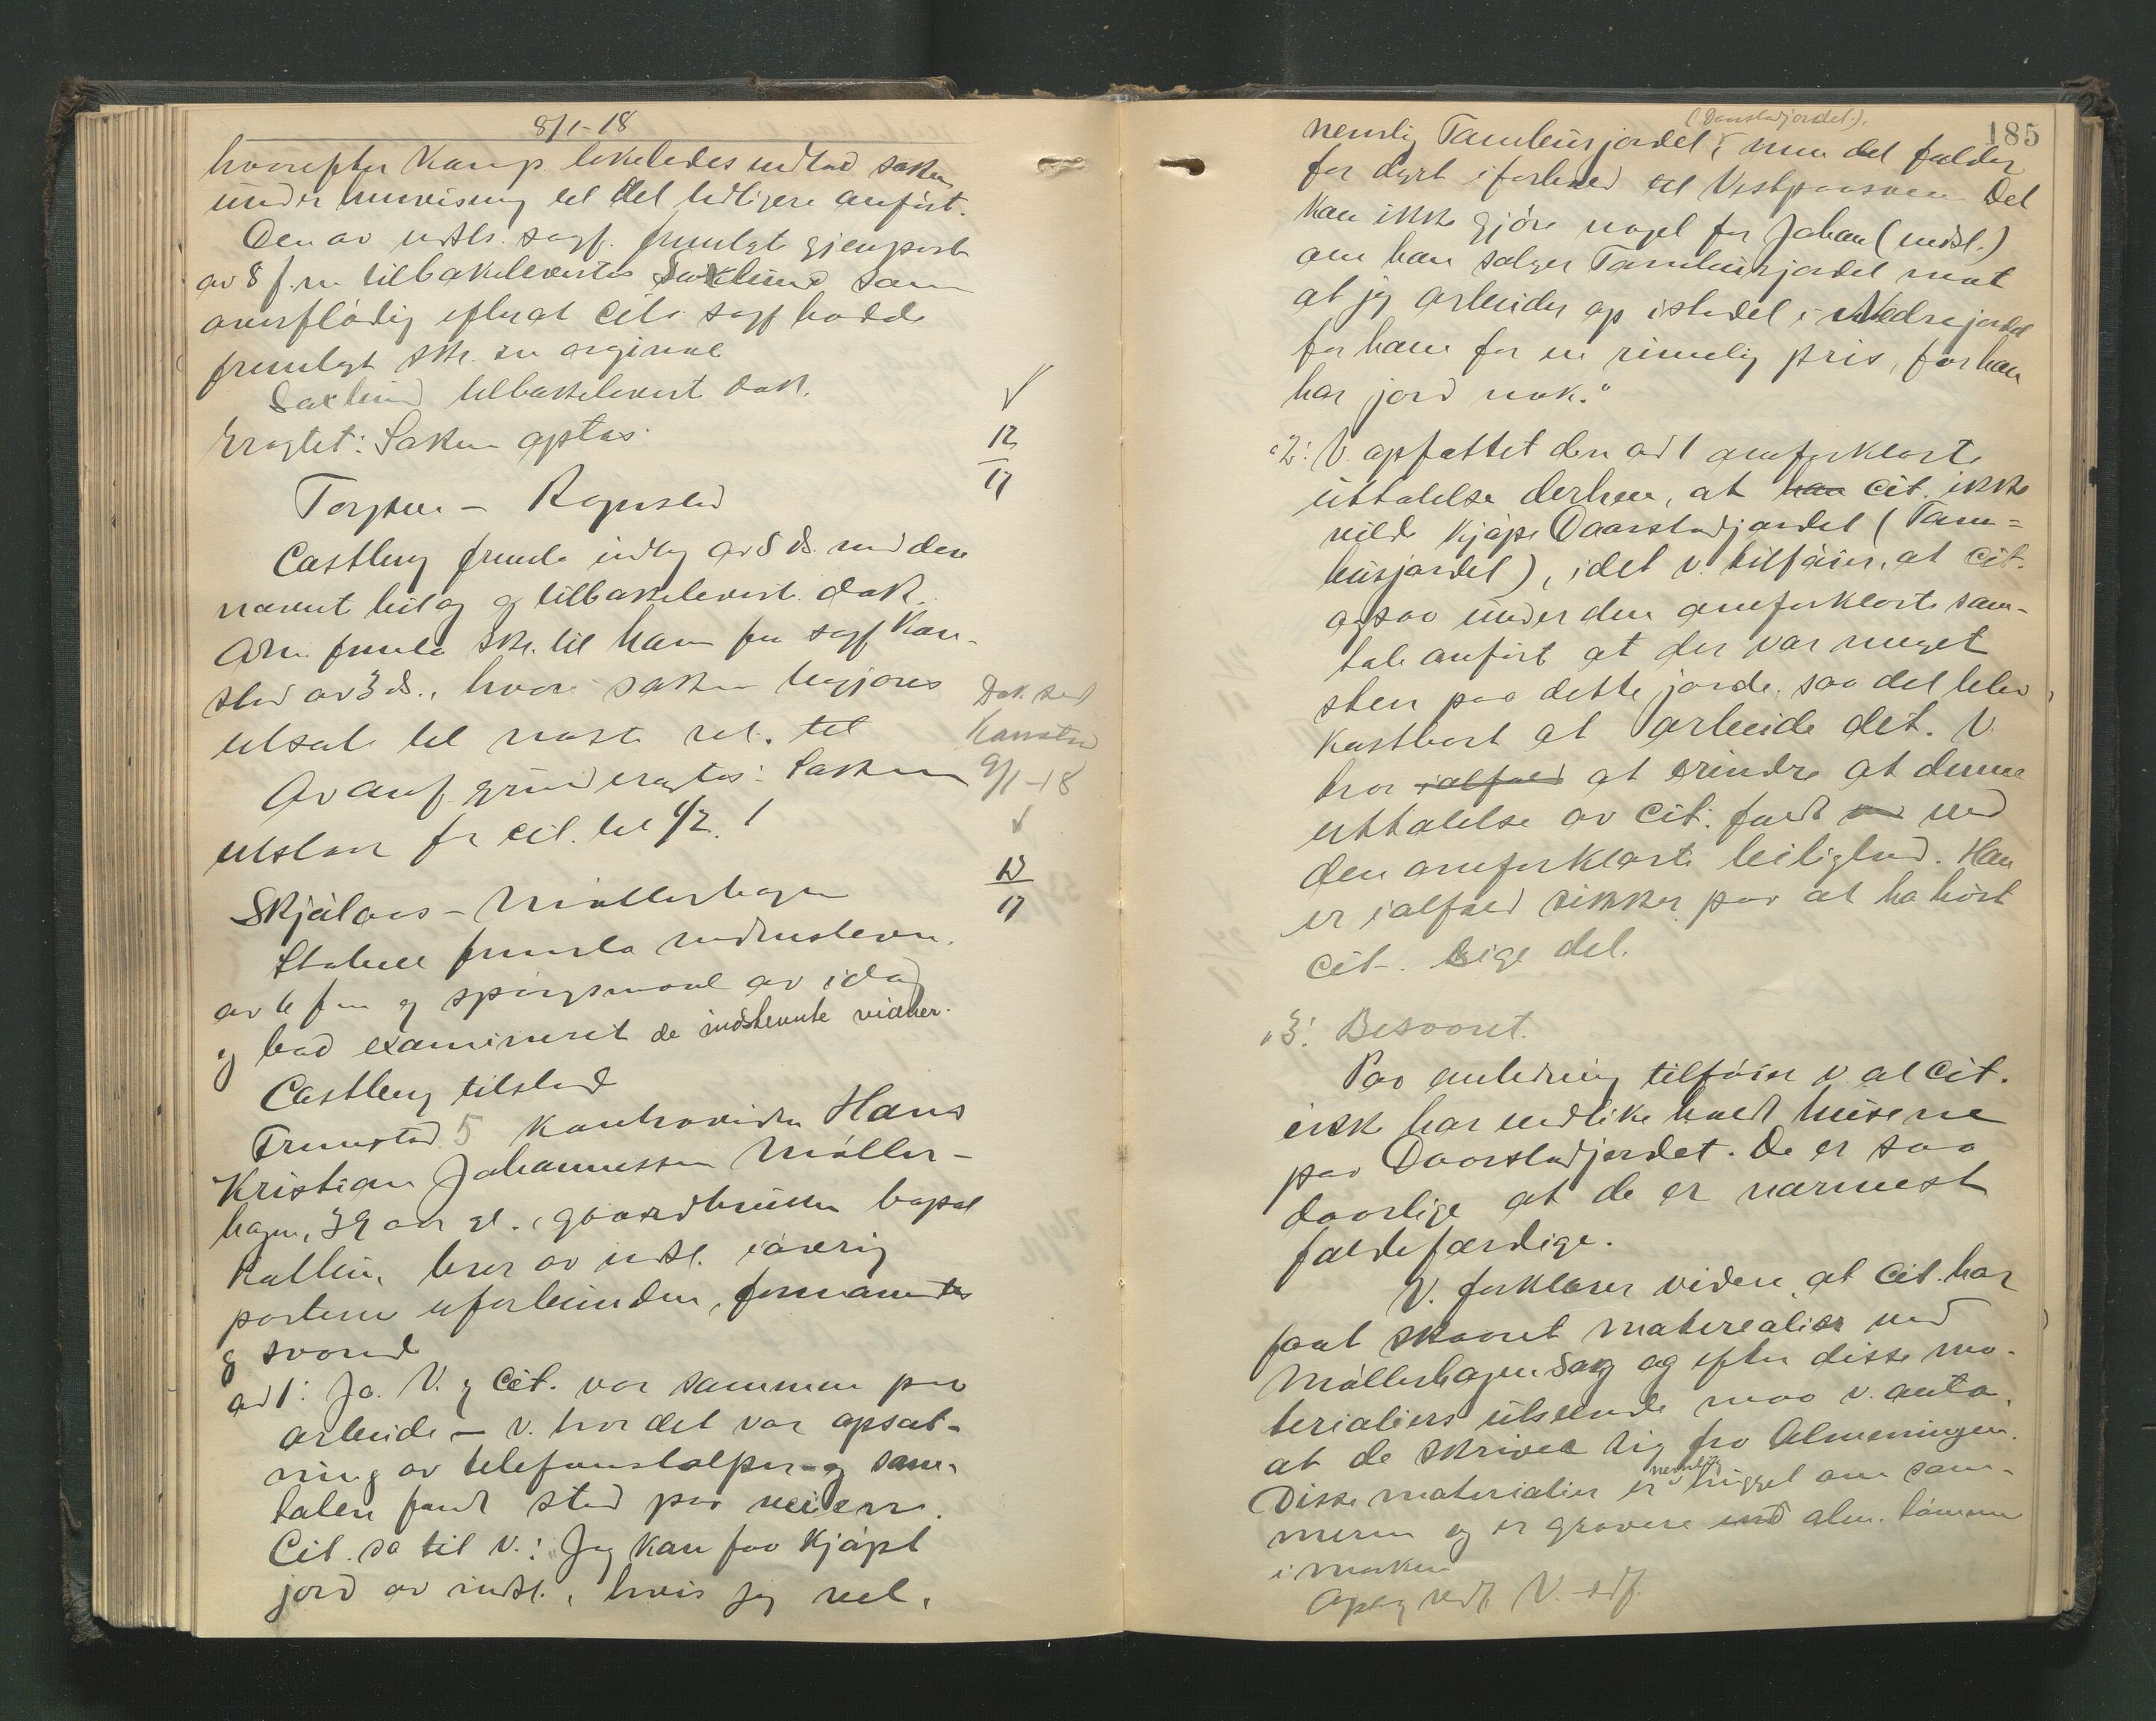 8/1-18
hvorefter Kamp. likeledes indlod saken
under henvisning til det tidligere anført.
Den av indst. sagf. fremlagt gjenpart
av 8 f.m. tilbakelevertes Saxlund som
overflødig efterat cit. sagf hadde
fremlagt skr. in orginal
Saxlund tilbakelevert dok. ✓
Eragtet: Saken optas: 12
17
Castberg fremla indlæg av 5 ds. med den
nævnt bilag og tilbakelevert dok.
fremla skr. til ham fra sagf Kan-
stad av 3 ds., hvori saken begjæres Dok. sed
utsat til næste ret. til Kanstad
Av anf. grund eragtes: Saken 9/1-18
utstaar for cit. til 1/2. ✓
Skjølaas - Møllerhagen 13
17
Stabell fremla vidnestevn.
av 6 f m og spørgsmaal av idag
og bad examineret de indstevnte vidner.
Castberg tilsted
Fremstod 5 kontravidne Hans
Kristian Johannessen Møller-
hagen, 39 aar gl., gaardbruker bopæl
Kolbu, bror av indst. iøvrig
partene uforbunden, formanedes
og svored
ad 1: Ja. V. og cit. var sammen paa
arbeide - v. tror det var opsæt-
ning av telefonstolper - og sam-
talen fandt sted paa veien.
Cit. sa til v.: "Jeg kan faa kjøpt
jord av indst., hvis jeg vil,
185
(Daarstadjordet),
nemlig Tamburjordet, men det falder
for dyrt i forhold til Det
kan ikke gjøre noget for Johan (indst.)
om han sælger Tamburjordet mot
at jeg arbeider op istedet i Nedrejordet
for ham for en rimelig pris, for han
har jord nok."
"2: V. opfattet den ad 1 omforklarte
uttalelse derhen, at han cit. ikke
vilde kjøpe Daarstadjordet (Tam=
burjordet), idet v. tilføier, at cit.
ogsaa under den omforklarte sam-
tale anført at der var meget
sten paa dette jorde, saa det blev
kostbart at arbeide det. V.
tror ialfald at erindre at denne
uttalelse av cit. faldt ved
den omforklarte leilighed. Han
er ialfald sikker paa at ha hørt
cit. sige det.
"3: Besvaret.
Paa anledning tilføier v. at cit.
ikke har vedlike holdt husene
paa Daarstadjordet. De er saa
daarlige at de er nærmest
faldefærdige.
V. forklarer videre, at cit. har
faat skaaret materealier ved
Møllerhagen Sag og efter disse ma-
terialiers utseende maa v. anta
at de skriver sig fra Almenningen.
Disse materialier er nemlig hugget om som-
meren og er grovere end alm. tømmer
i marken
Oplæg vedt. V. - edf.